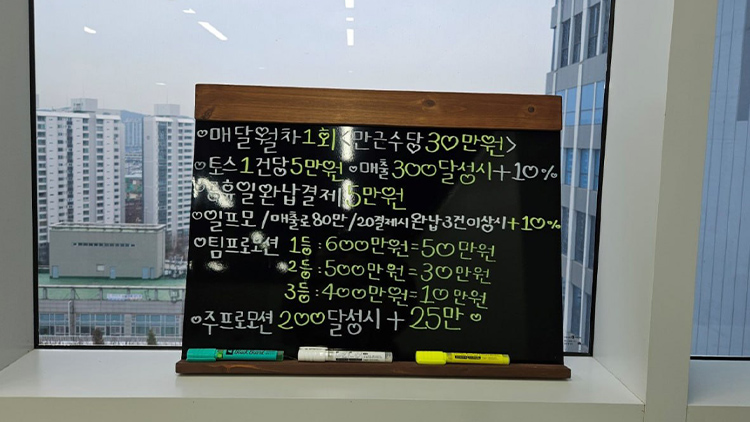 ♡매달월차1회<만근수당30만원>
♡토스1건당5만원 ♡매출300달성시+10%
휴일완납결제 5만원
♡일프모/매출로80만/20결제시완납3건이상시+10%
♡팀프로모션 1등:600만원=50만원
2등:500만원=30만원
3등:400만원=10만원
♡주프로모션 200달성시+25만♡